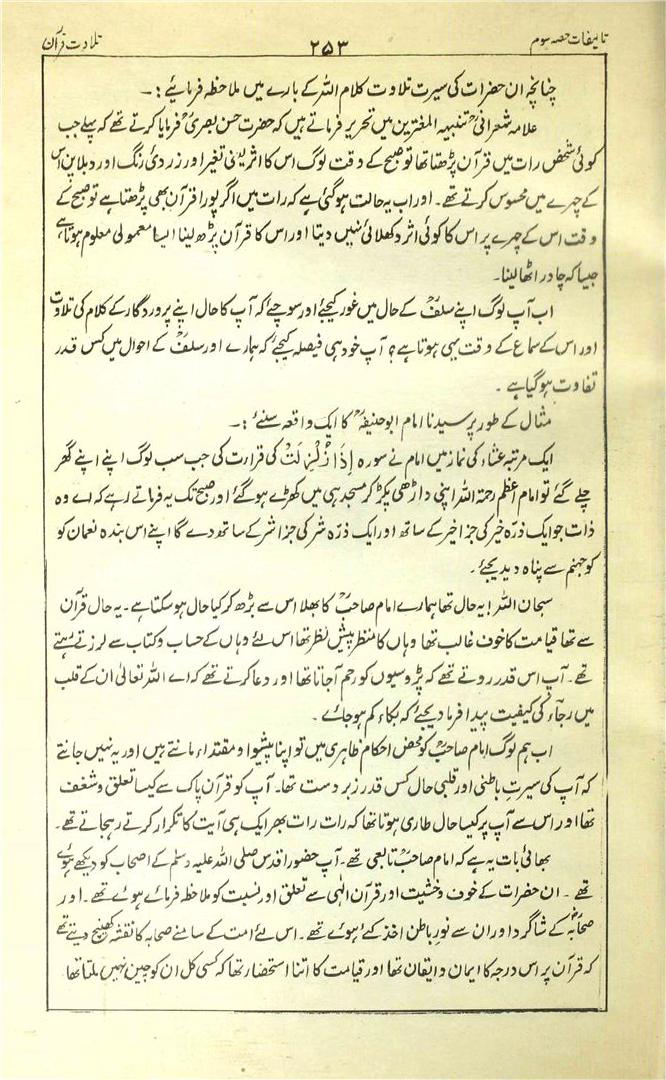 تالیفات حصہ سوم ۲۵۳ تلاوت قرآن
چنانچہ ان حضرات کی سیرت تلاوت کلام اللہ کے بارے میں ملاحظہ فرمائیے :۔
علامہ شعرانیؒ تنبیہ المغترین میں تحریر فرماتے ہیں کہ حضرت حسن بصریؒ فرمایا کرتے تھے کہ پہلے جب
کوئی شخص رات میں قرآن پڑھتا تھا تو صبح کے وقت لوگ اس کا اثر یعنی تغیر اور زردی رنگ اور دبلا پن اس
کے چہرے میں محسوس کرتے تھے۔ اور اب یہ حالت ہو گئی ہے کہ رات میں اگر پورا قرآن بھی پڑھتا ہے تو صبح کے
وقت اس کے چہرے پر اس کا کوئی اثر دکھلائی نہیں دیتا اور اس کا قرآن پڑھ لینا ایسا معمولی معلوم ہوتا ہے
جیسا کہ چادر اٹھا لینا۔
اب آپ لوگ اپنے سلفؒ کے حال میں غور کیجئے اور سوچئے کہ آپ کا حال اپنے پروردگار کے کلام کی تلاوت
اور اس کے سماع کے وقت یہی ہوتا ہے؟ آپ خود ہی فیصلہ کیجئے کہ ہمارے اور سلفؒ کے احوال میں کس قدر
تفاوت ہو گیا ہے۔
مثال کے طور پر سیدنا امام ابو حنیفہؒ کا ایک واقعہ سنئے :۔
ایک مرتبہ عشاء کی نماز میں امام نے سورہ إِذَا زُلْزِلَتْ کی قرارت کی جب سب لوگ اپنے اپنے گھر
چلے گئے تو امام اعظم رحمۃ اللہ اپنی داڑھی پکڑ کر مسجد ہی میں کھڑے ہو گئے اور صبح تک یہ فرماتے رہے کہ اے وہ
ذات جو ایک ذرّہ خیر کی جزا خیر کے ساتھ اور ایک ذرّہ شر کی جزا شر کے ساتھ دے گا اپنے اس بندہ نعمان کو
کو جہنم سے پناہ دیدیجئے۔
سبحان اللہ! یہ حال تھا ہمارے امام صاحبؒ کا بھلا اس سے بڑھ کر کیا حال ہو سکتا ہے۔ یہ حال قرآن
سے تھا قیامت کا خوف غالب تھا وہاں کا منظر پیش نظر تھا اس لئے وہاں کے حساب و کتاب سے لرزتے رہتے
تھے۔ آپ اس قدر روتے تھے کہ پڑوسیوں کو رحم آجاتا تھا اور دعا کرتے تھے کہ اے اللہ تعالیٰ ان کے قلب
میں رجاء کی کیفیت پیدا فرما دیجئے کہ بکاء کم ہو جائے۔
اب ہم لوگ امام صاحبؒ کو محض احکام ظاہری میں تو اپنا پیشوا و مقتداء مانتے ہیں اور یہ نہیں جانتے
کہ آپ کی سیرتِ باطنی اور قلبی حال کس قدر زبردست تھا۔ آپ کو قرآن پاک سے کیسا تعلق و شغف
تھا اور اس سے آپ پر کیسا حال طاری ہوتا تھا کہ رات رات بھر ایک ہی آیت کا تکرار کرتے رہ جاتے تھے۔
بھائی بات یہ ہے کہ امام صاحبؒ تابعی تھے۔ آپ حضور اقدس صلی اللہ علیہ وسلم کے اصحاب کو دیکھے ہوئے
تھے۔ ان حضرات کے خوف و خشیت اور قرآن الٰہی سے تعلق اور نسبت کو ملاحظہ فرمائے ہوئے تھے۔ اور
صحابہؓ کے شاگرد اور ان سے نورِ باطن اخذ کئے ہوئے تھے۔ اس لئے امت کے سامنے صحابہ کا نقشہ کھینچ دیتے تھے
کہ قرآن پر اس درجہ کا ایمان و ایقان تھا اور قیامت کا اتنا استحضار تھا کہ کسی کل ان کو چین نہیں ملتا تھا